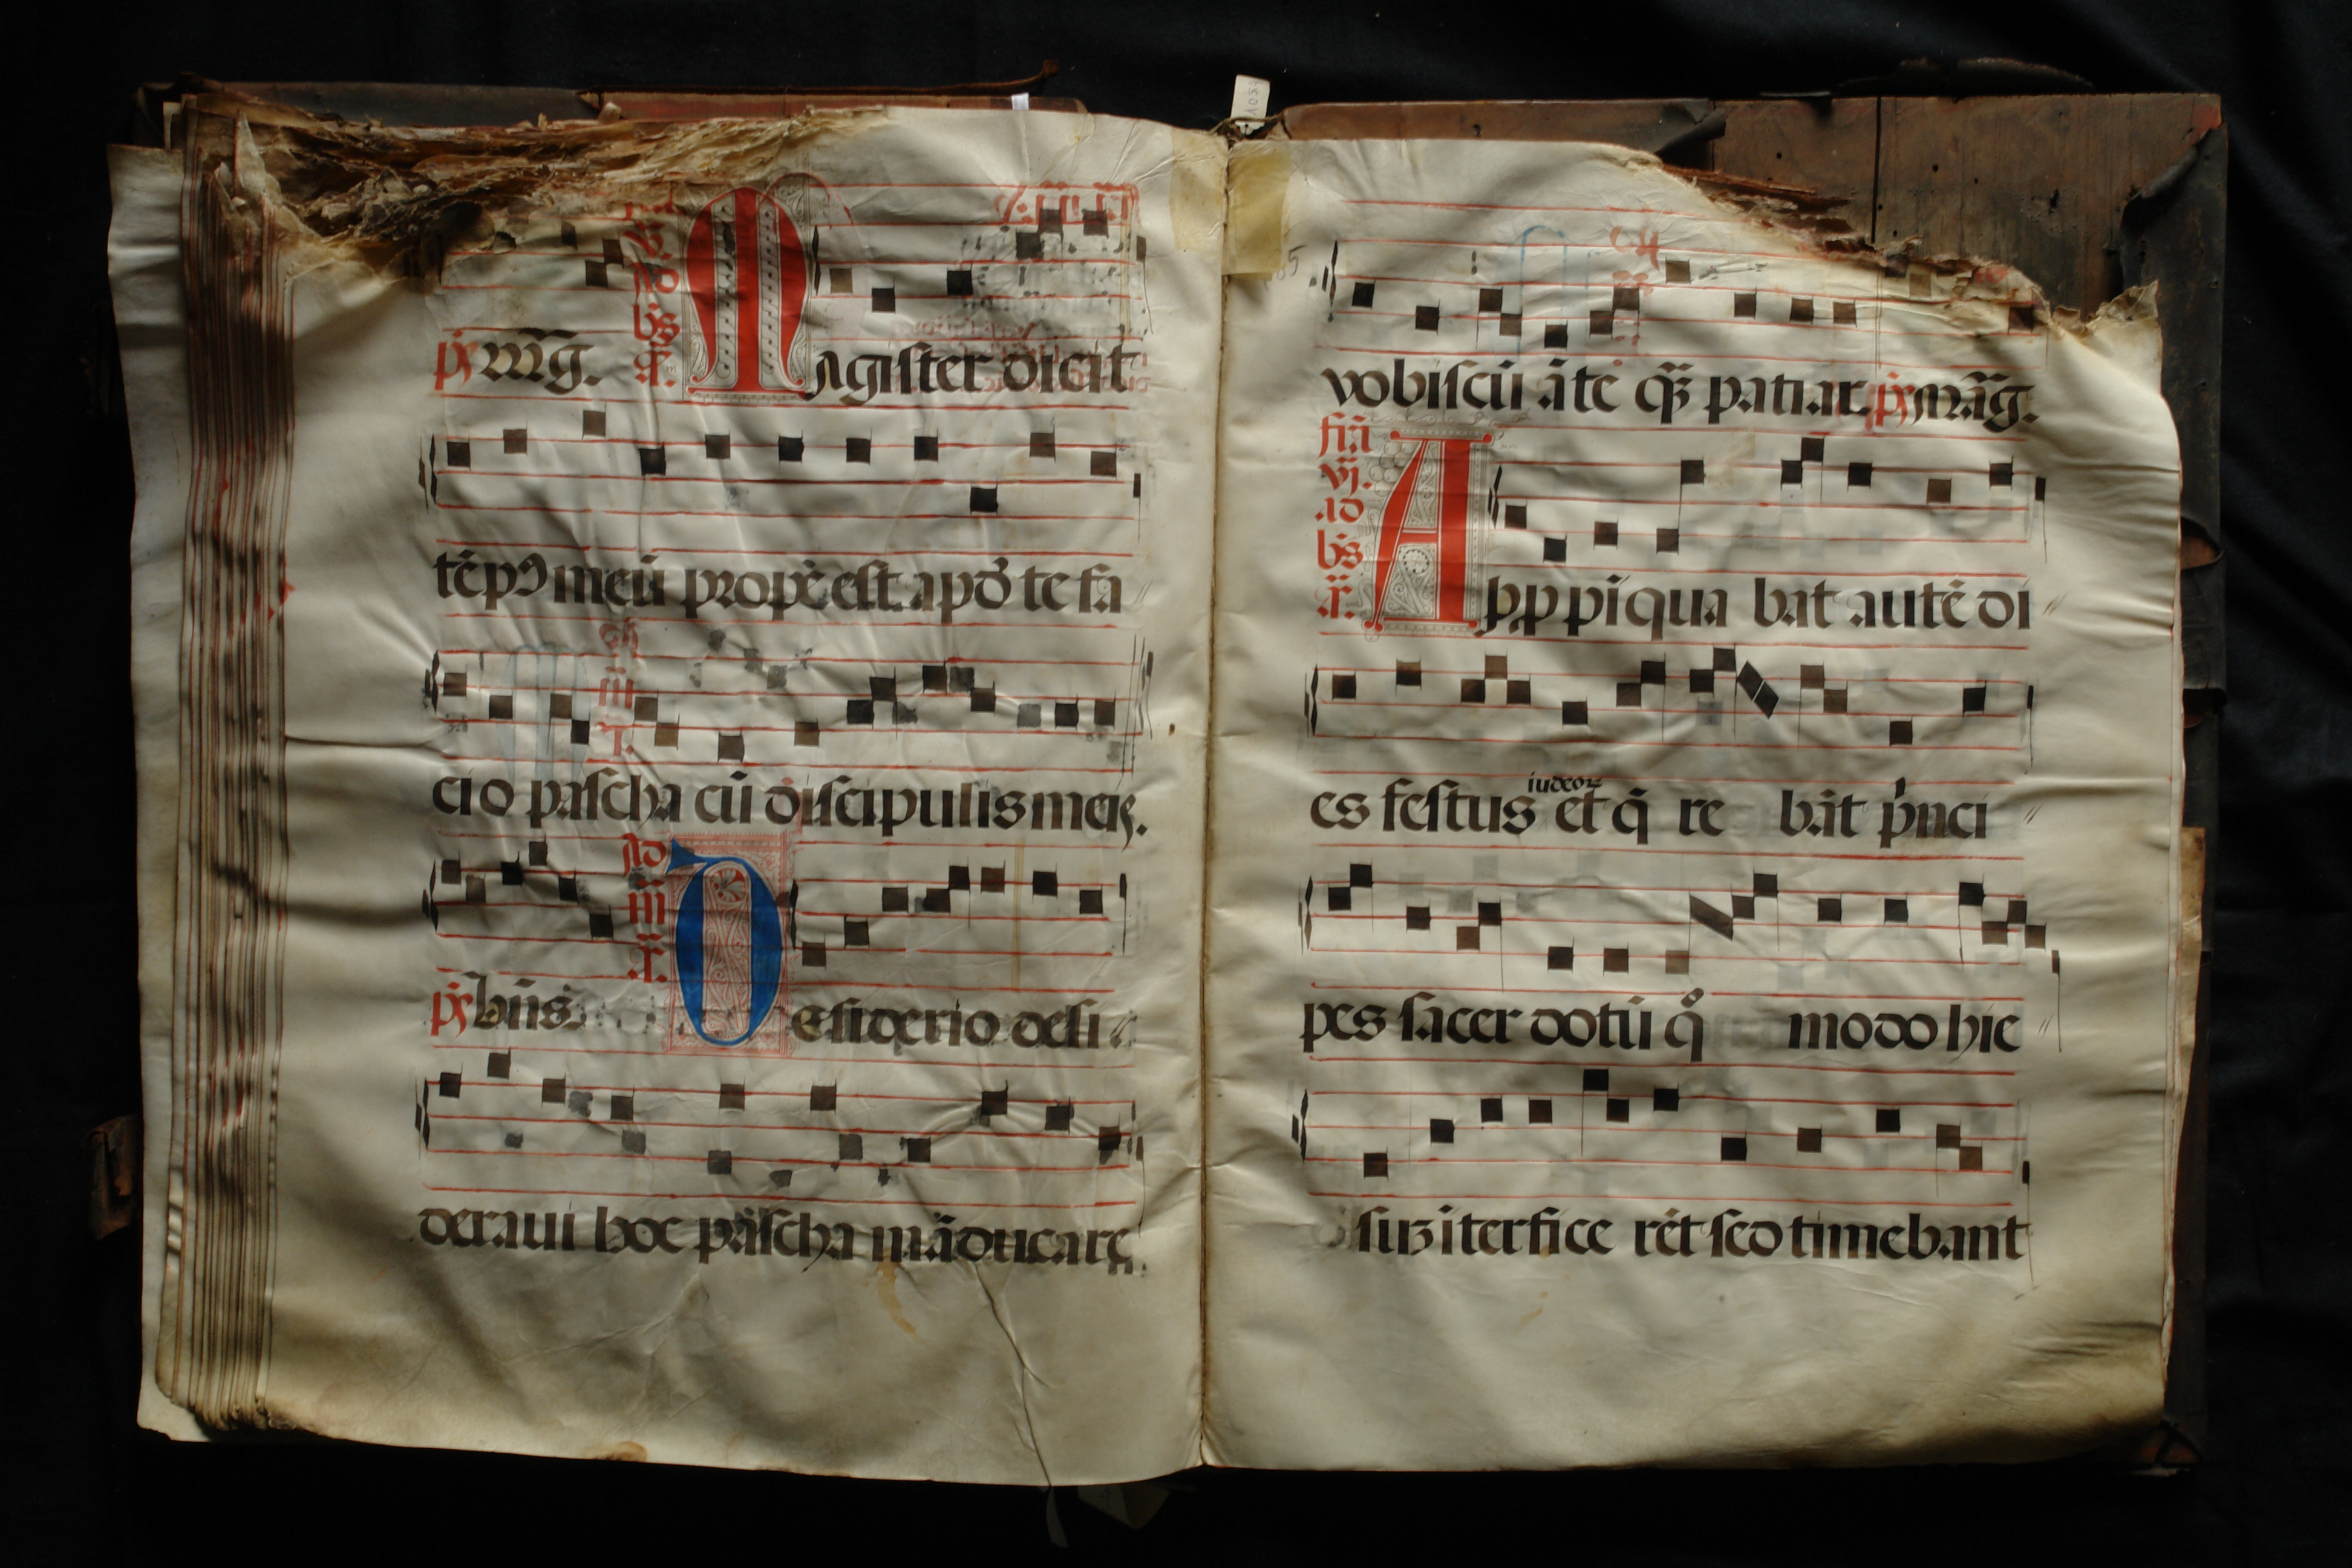 ad
bs
p̄s mag. Magister dicit
tēpꝰ meū prope est apd̓ te fa
cio pascha cū discipulis meis.
Ad
m
p̄s bn̄s. Desiderio desi
deraui hoc pascha māducare
vobiscū āte qȝ patiar. p̄s mag.
fia
vj.
ad
bs
Appp̄iqua bat autē di
iudeoꝝ
es festus et q̄ re bāt p̓nci
pes sacer dotū qͦ modo hie
suȝ īterfice rēt sed timebant